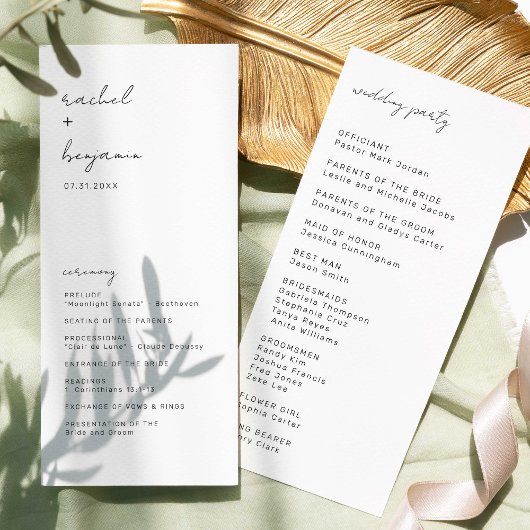 rachel
+
benjamin
07.31.20XX
ceremony
PRELUDE
"Moonlight Sonata" - Beethoven
SEATING OF THE PARENTS
PROCESSIONAL
"Clair de Lune" - Claude Debussy
ENTRANCE OF THE BRIDE
READINGS
1 Corinthians 13:1-13
EXCHANGE OF VOWS & RINGS
PRESENTATION OF THE
Bride and Groom
wedding party
OFFICIANT
Pastor Mark Jordan
PARENTS OF THE BRIDE
Leslie and Michelle Jacobs
PARENTS OF THE GROOM
Donavan and Gladys Carter
MAID OF HONOR
Jessica Cunningham
BEST MAN
Jason Smith
BRIDESMAIDS
Gabriela Thompson
Stephanie Cruz
Tanya Reyes
Anita Williams
GROOMSMEN
Randy Kim
Joshua Francis
Fred Jones
Zeke Lee
FLOWER GIRL
Sophia Carter
NG BEARER
nry Clark